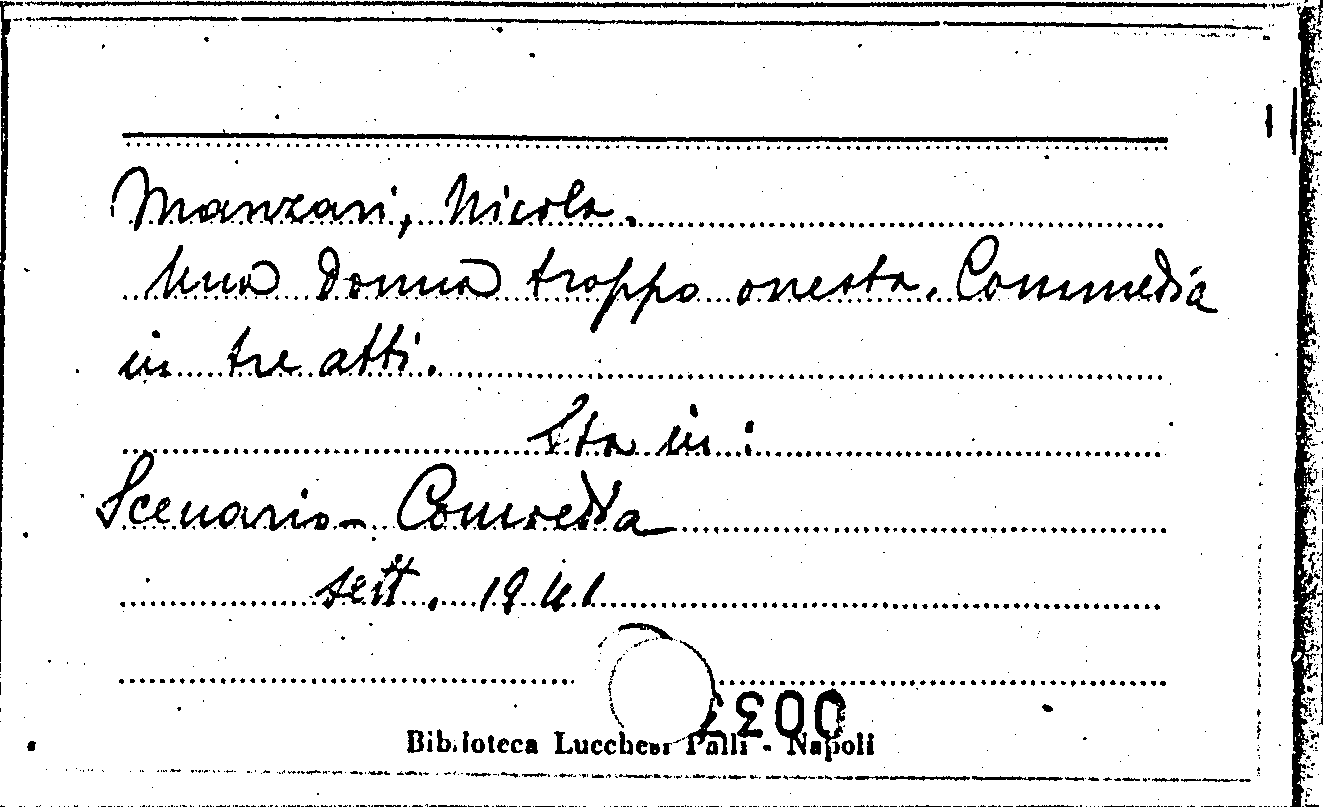 Manzari, Nicola.
Una donna troppo onesta. Commedia
in tre atti.
Sta in:
Scenario - Commedia
sett. 1941
Biblioteca Lucchesi Palli - Napoli